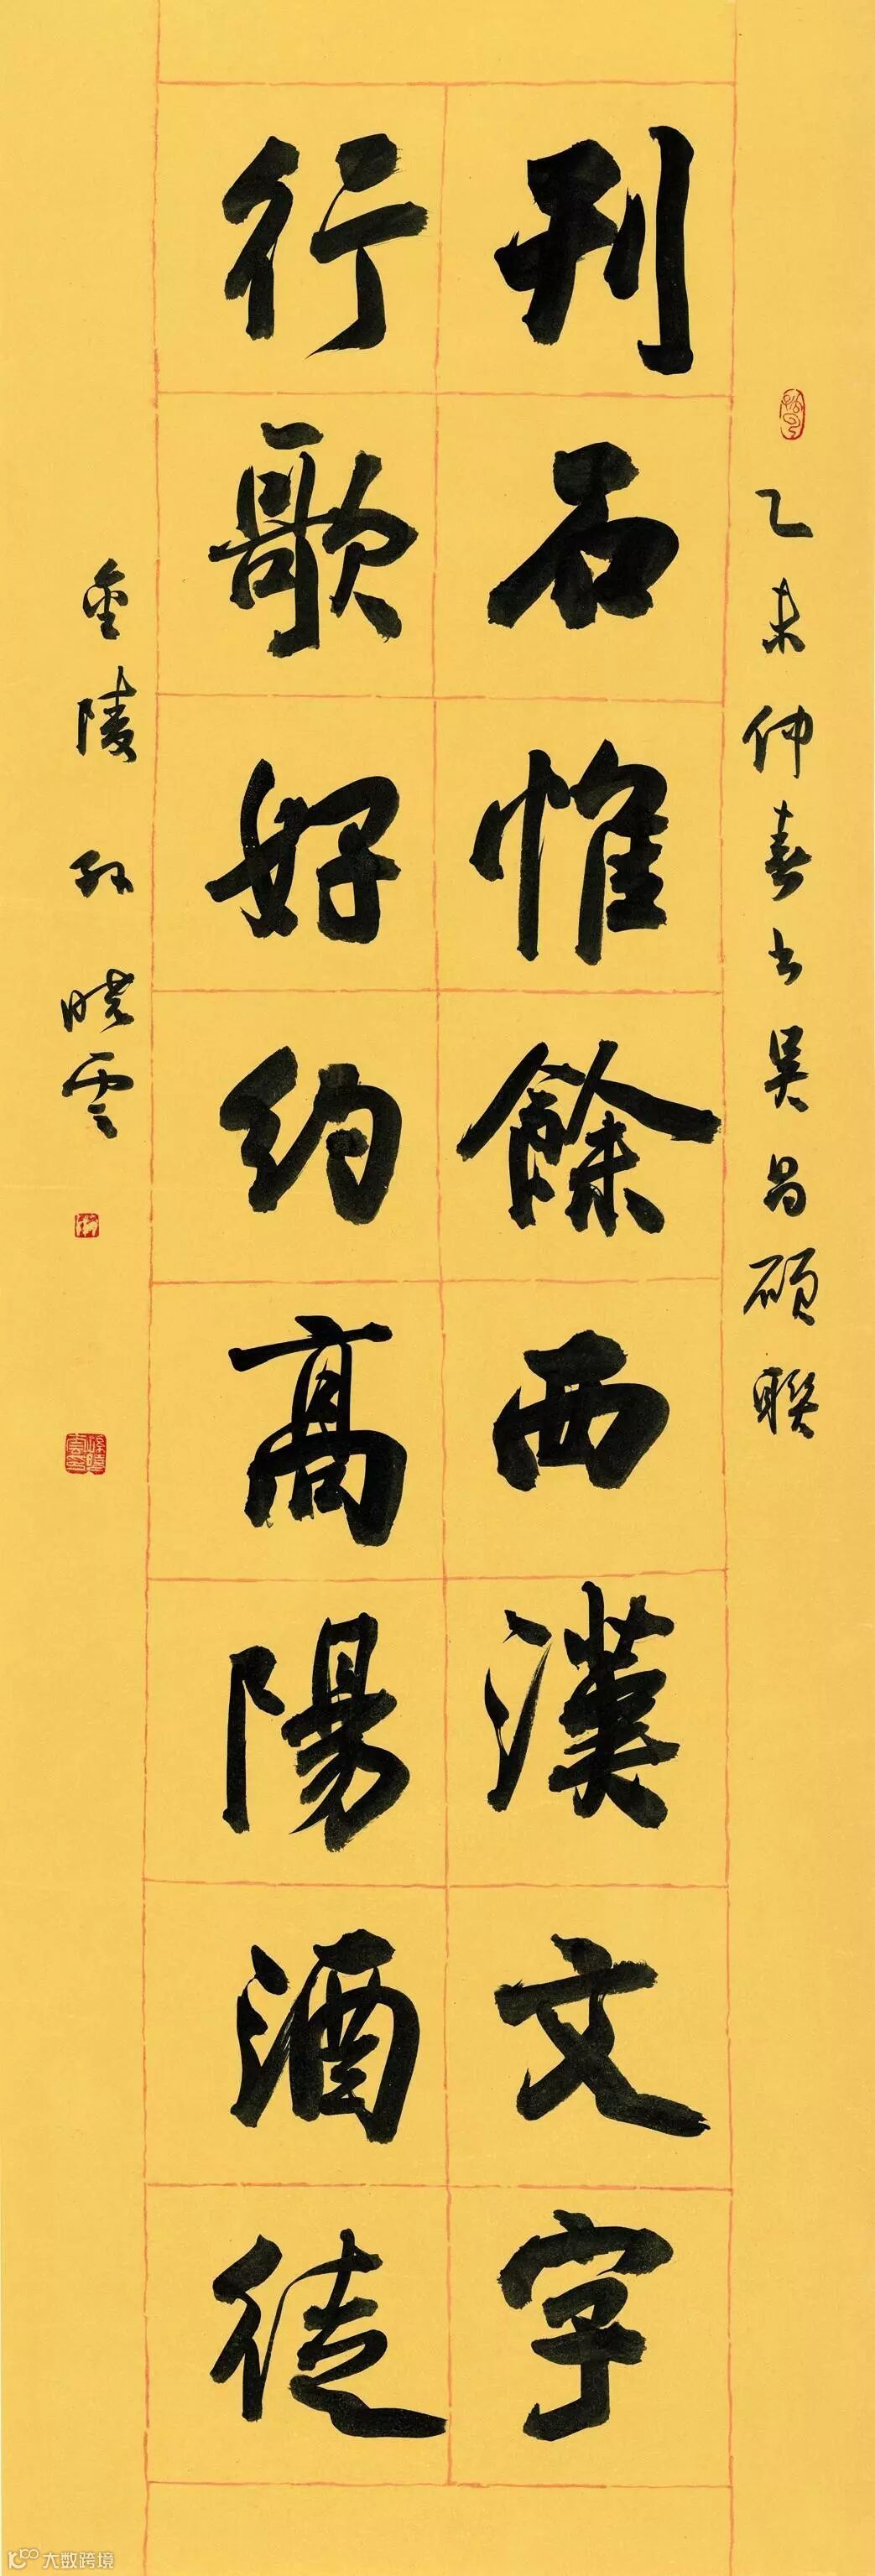 乙未仲春書吳昌碩聯
刊石惟餘西漢文字
行歌好約高陽酒徒
金陵孫曉雲
孫曉雲印
大数跨境